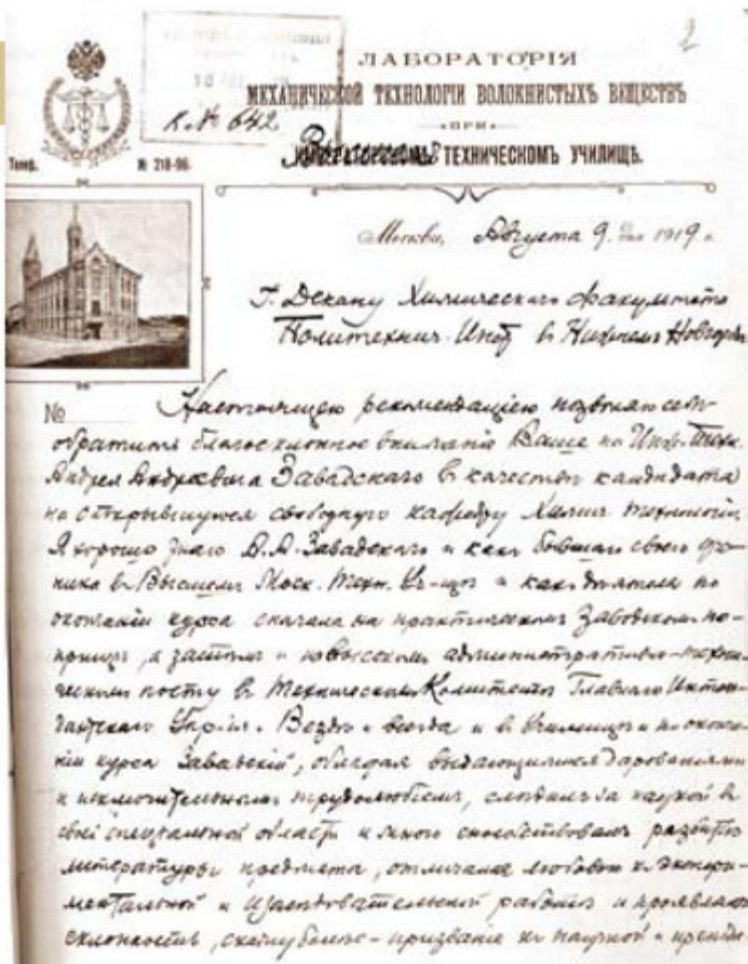 2
ЛАБОРАТОРІЯ
МЕХАНИЧЕСКОЙ ТЕХНОЛОГІИ ВОЛОКНИСТЫХЪ ВЕЩЕСТВЪ
ПРИ
К. № 642
Телеф. № 218-96.
ТЕХНИЧЕСКОМЪ УЧИЛИЩѢ.
Москва, Августа 9 дня 1919 г.
Г. Декану Химическаго факультета
Политехнич. Инст. в Нижнем Новгородѣ
№ Настоящею рекомендаціею позволяю себѣ
обратить благосклонное вниманіе Ваше на Инж.
Андрея Андреевича Завадскаго в качествѣ кандидата
на открывшуюся свободную кафедру Химич. технологіи.
Я хорошо знаю А. А. Завадскаго и как бывшаго своего уче-
ника в Высшем Моск. Техн. Уч-щѣ и как дѣятеля по
окончаніи курса сначала на практическом заводском по-
прищѣ, а затѣм и на высоком административно-техни-
ческом посту в Техническом Комитетѣ Главнаго Интен-
дантскаго Упр-ія. Вездѣ и всегда и в Училищѣ и по оконча-
ніи курса Завадскій, обладая выдающимися дарованіями
и исключительным трудолюбіем, слѣдил за наукой в
своей спеціальной области и много способствовал развитію
литературы предмета, отличался любовью к экспери-
ментальной и изслѣдовательской работѣ и проявлял
склонность, скажу болѣе - призваніе к научной и препода-